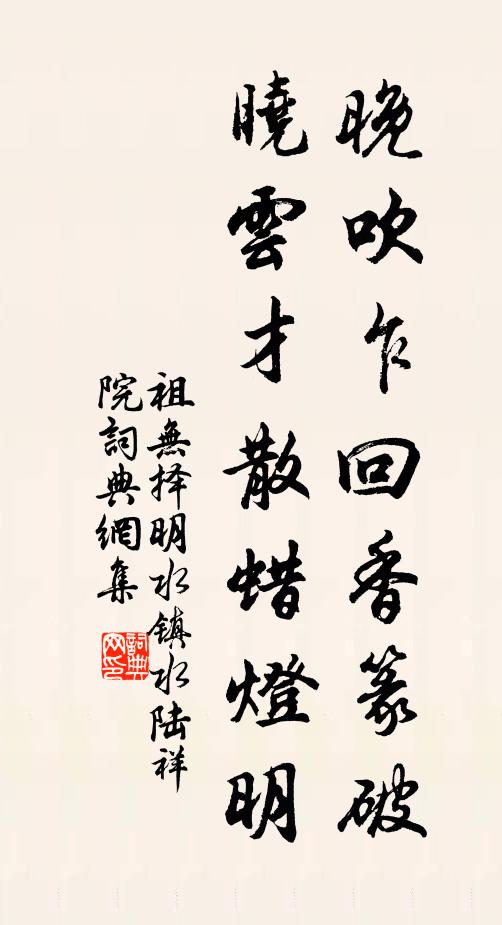 晚吹乍回香篆破
曉雲才散蜡燈明
祖無择明水镇水陆祥
院詞典網集
詞典網印